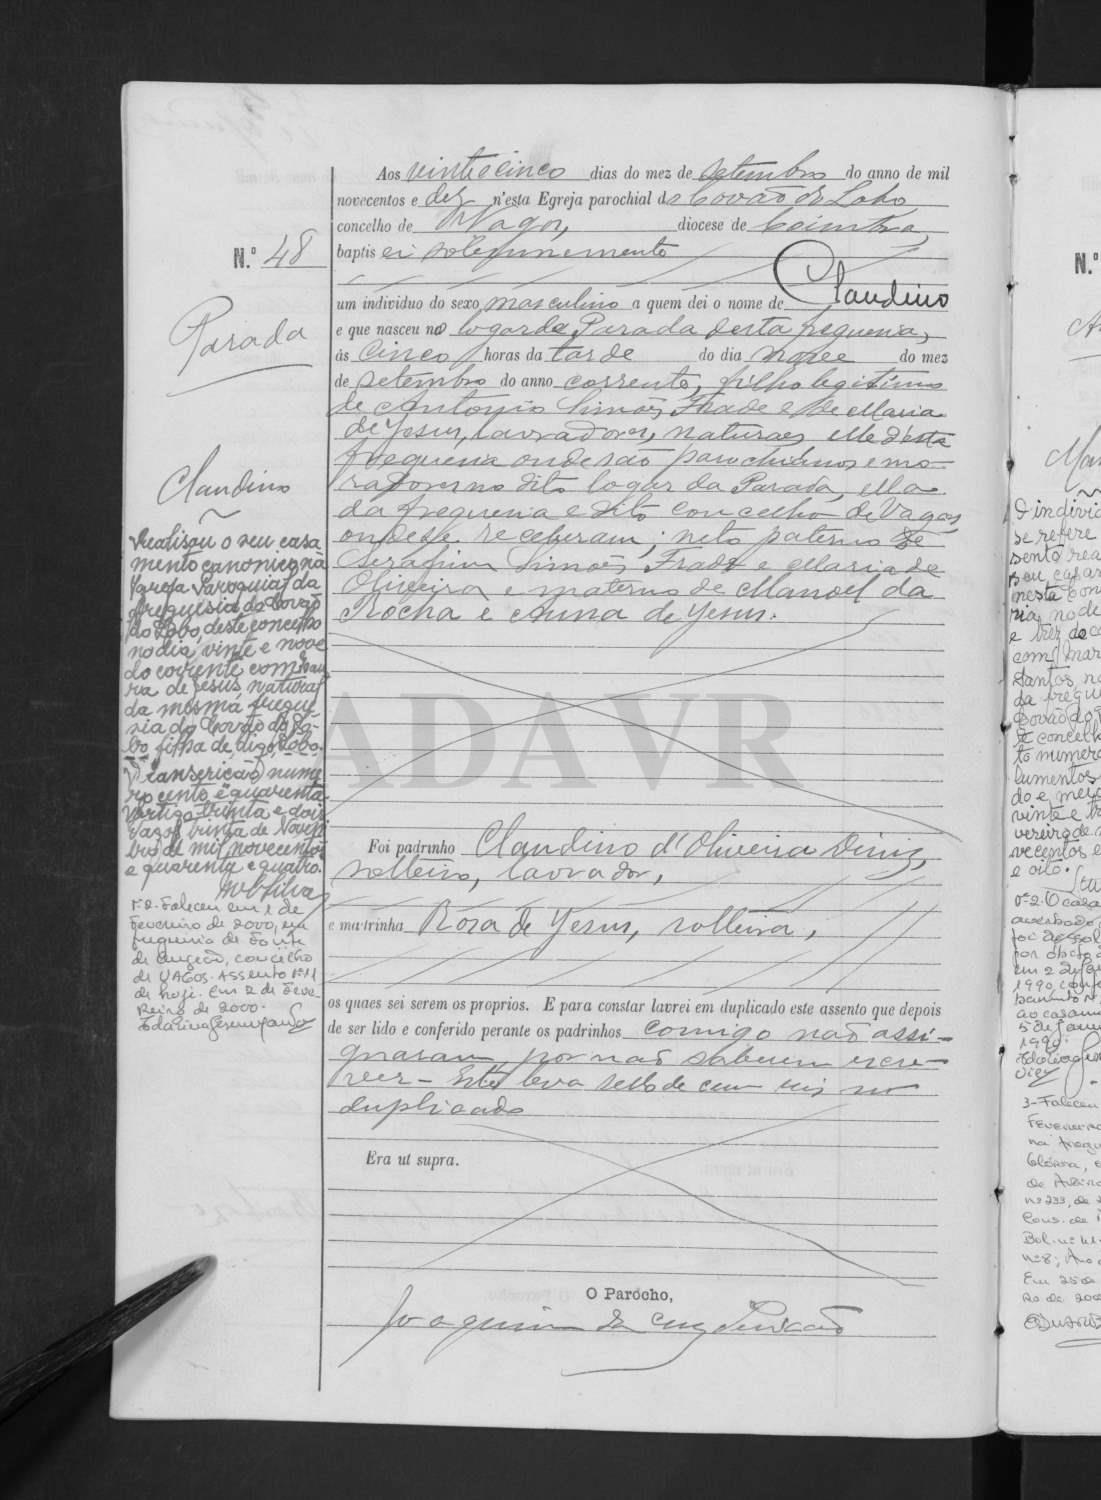 N.º 48
Parada
Claudino
Realisou o seu casa
mento canonico na
Igreja Paroquial da
freguesia do Covão
do Lobo, deste concelho
no dia vinte e nove
do corrente com Isau
ra de Jesus natural
da mesma fregue
sia do Covão do Lo-
bo filha de, digo, Lobo.
Transcrição nume
ro cento e quarenta
Vagos, trinta e de Novem
bro de mil novecentos
e quarenta e quatro.
MSilva
Nº2. Faleceu em 1 de
Fevereiro de 2000, na
freguesia de Fonte
de Angeão, concelho
de VAGOS. Assento nº 11
de hoje. Em 2 de Feve-
Reiro de 2000.
Aos vinte e cinco dias do mez de setembro do anno de mil
novecentos e dez n'esta Egreja parochial de Covão do Lobo
concelho de Vagos, diocese de Coimbra,
baptisei solemnemente
um individuo do sexo masculino a quem dei o nome de Claudino
e que nasceu no logar da Parada desta freguesia,
ás cinco horas da tarde do dia nove do mez
de setembro do anno corrente, filho legitimo
de Antonio Simões Frade e de Maria
de Jesus, lavradores, naturaes, elle d'esta
freguesia onde são parochianos e mo-
radores no dito logar da Parada, ella
da freguesia e dito concelho de Vagos,
onde se receberam; neto paterno de
Serafim Simões Frade e Maria de
Oliveira e materno de Manoel da
Rocha e Anna de Jesus.
ADAVR
Foi padrinho Claudino d'Oliveira Diniz,
solteiro, lavrador,
e madrinha Rosa de Jesus, solteira,
os quaes sei serem os proprios. E para constar lavrei em duplicado este assento que depois
de ser lido e conferido perante os padrinhos comigo não assi-
gnaram por não saberem escre-
ver - Este leva sello de cem reis no
duplicado
Era ut supra.
O Parocho,
Joaquim da Cruz
N.º
O indivi
se refere
sento rea
seu casam
nesta Con
e trez de
com Mar
Santos, na
da fregue
Covão do
de concelh
to numero
vinte e
vereiro de
vecentos e
e oito.
nº2. O casa
averbado
foi dissol
por óbito
em 2 de
1990
ao casam
5 de Jan
1990.
3- Faleceu
Fevereiro
na fregu
Glória,
de Aveiro
nº 233, de
Cons. de
nº 8; Ano
Em 25 de